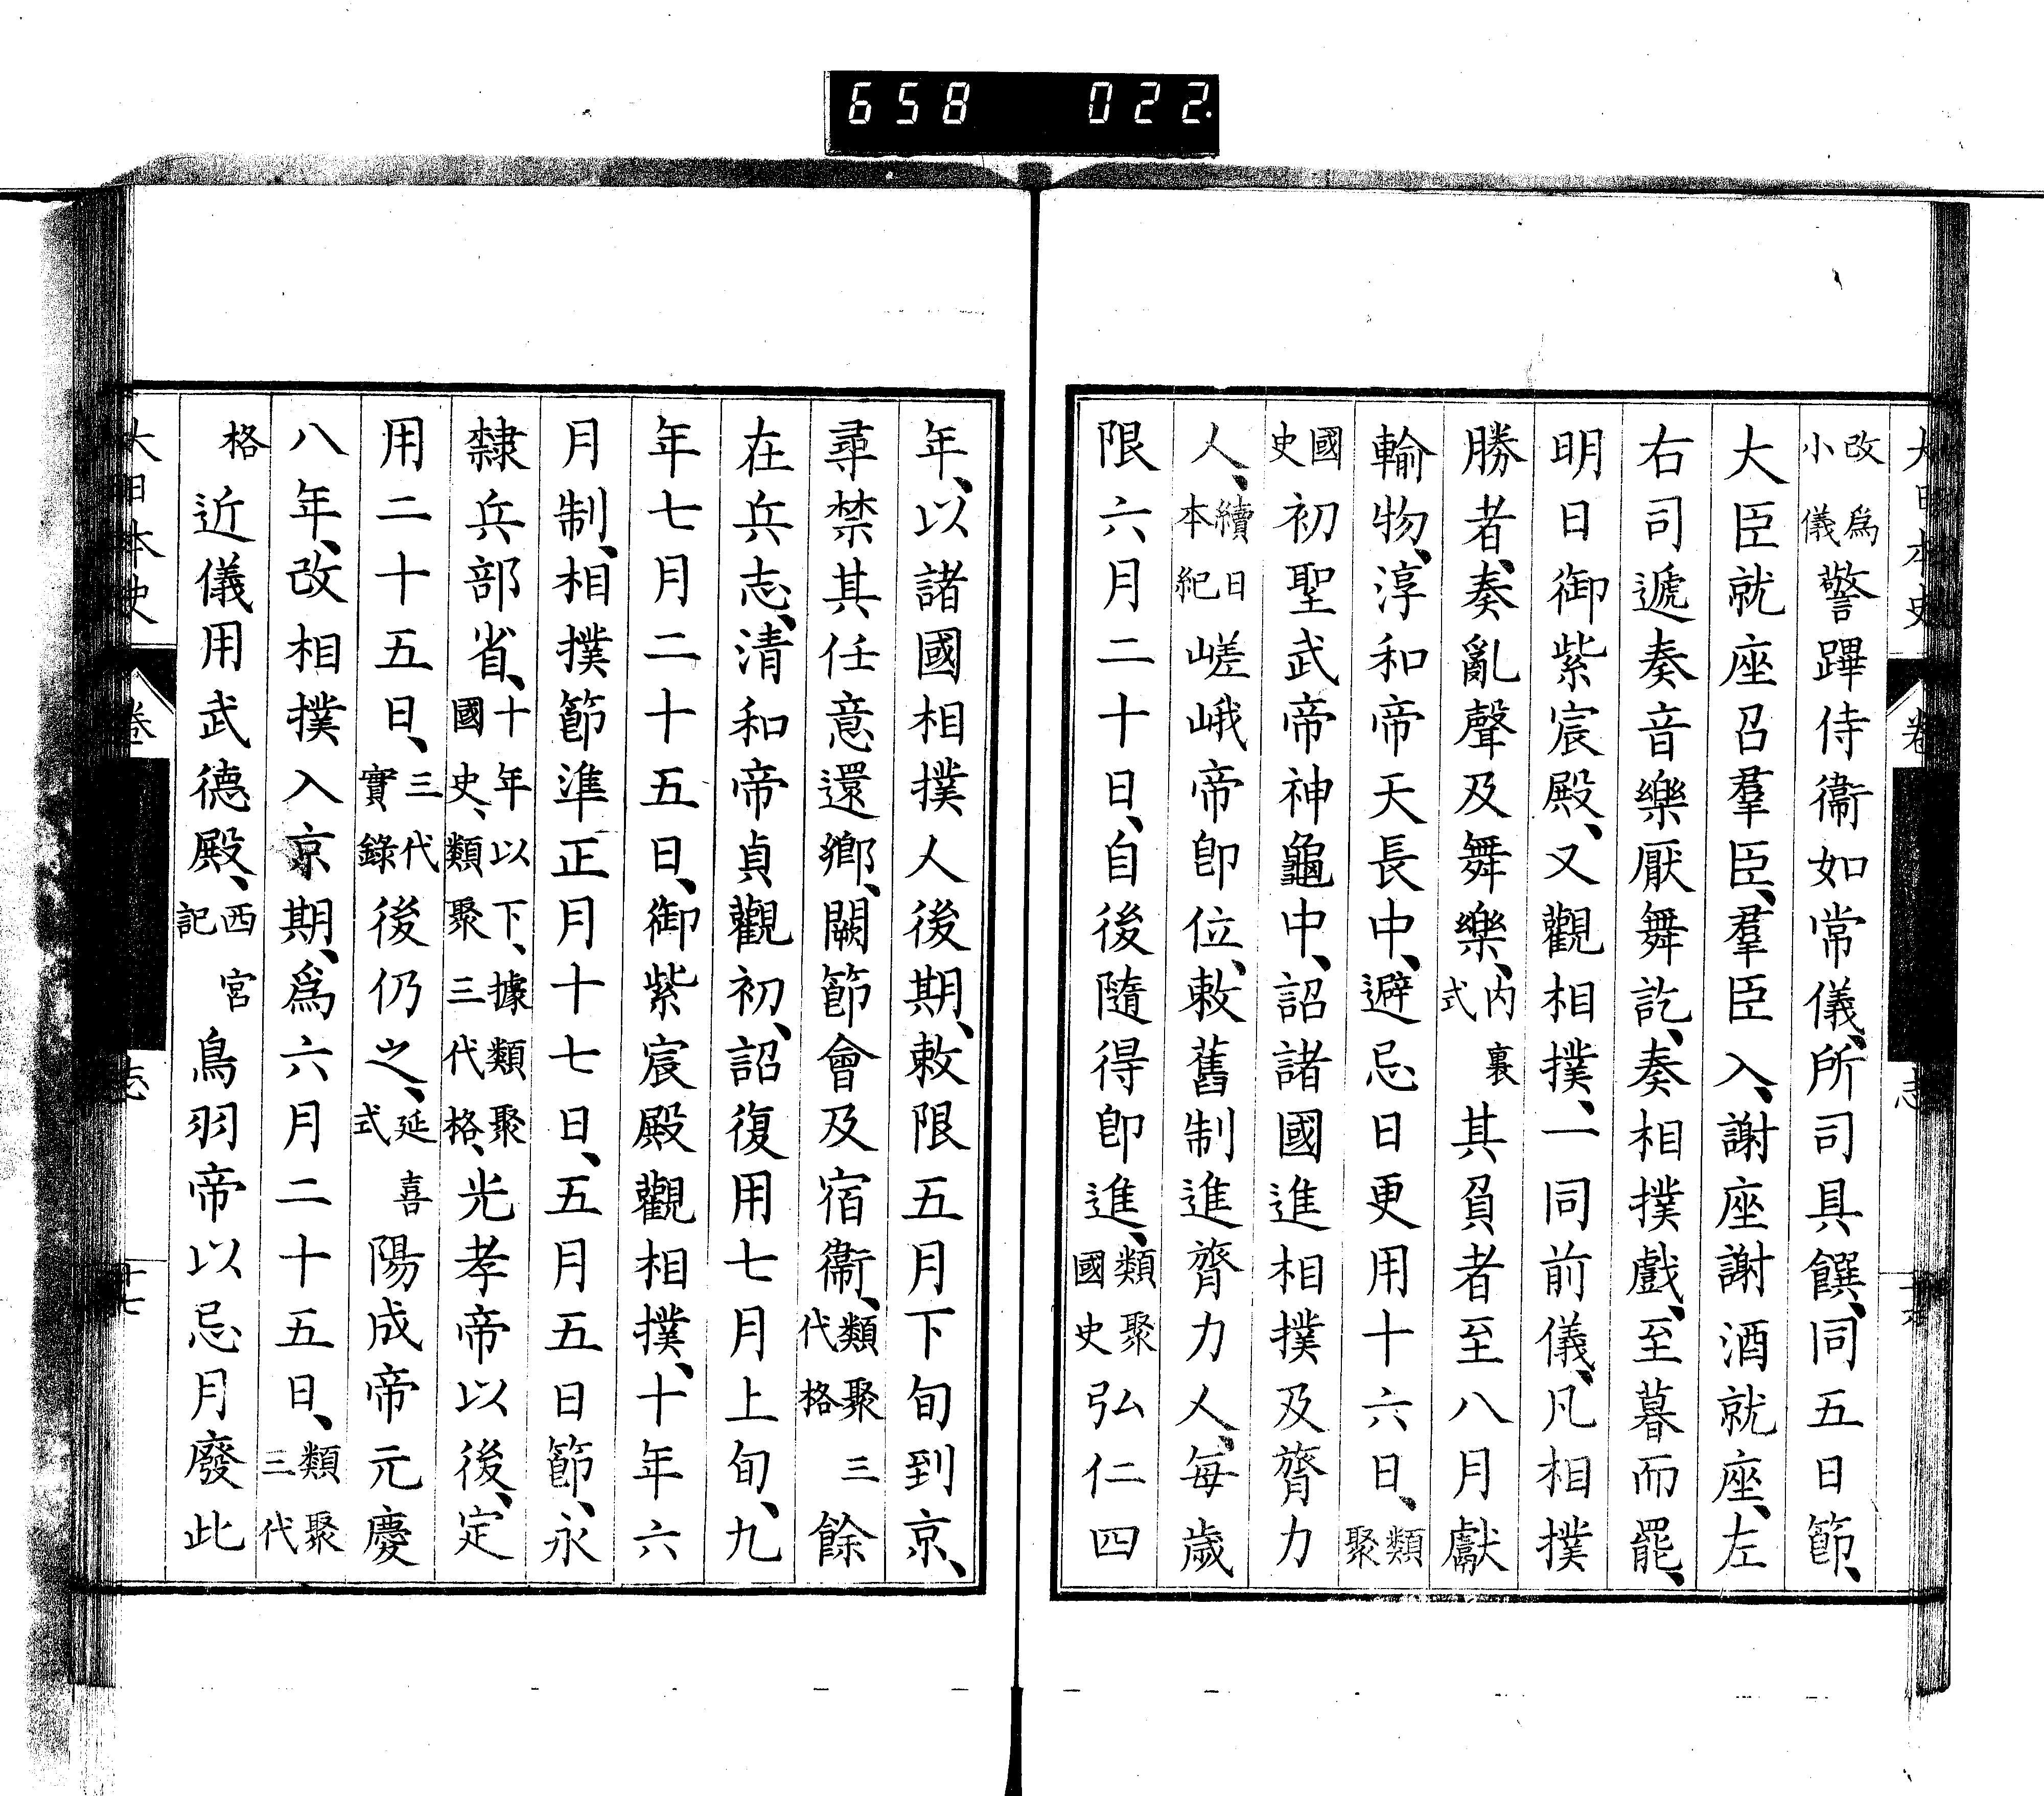 658 022
大日本史 卷 志
改爲小儀警蹕侍衞如常儀、所司具饌、同五日節、
大臣就座召羣臣、羣臣入、謝座謝酒就座、左
右司遞奏音樂厭舞訖、奏相撲戲、至暮而罷、
明日御紫宸殿、又觀相撲、一同前儀、凡相撲
勝者、奏亂聲及舞樂、內裏式其負者至八月獻
輸物、淳和帝天長中、避忌日更用十六日、類聚
國史初聖武帝神龜中、詔諸國進相撲及膂力
人、續日本紀嵯峨帝卽位、敕舊制進膂力人、每歲
限六月二十日、自後隨得卽進、類聚國史弘仁四
年、以諸國相撲人後期、敕限五月下旬到京、
尋禁其任意還鄉、闕節會及宿衞、類聚三代格餘
在兵志、清和帝貞觀初、詔復用七月上旬、九
年七月二十五日、御紫宸殿觀相撲、十年六
月制、相撲節準正月十七日、五月五日節、永
隸兵部省、十年以下、據類聚國史、類聚三代格、光孝帝以後、定
用二十五日、三代實錄後仍之、延喜式陽成帝元慶
八年、改相撲入京期、爲六月二十五日、類聚三代
格近儀用武德殿、西宮記鳥羽帝以忌月廢此
大日本史 卷 志 十七